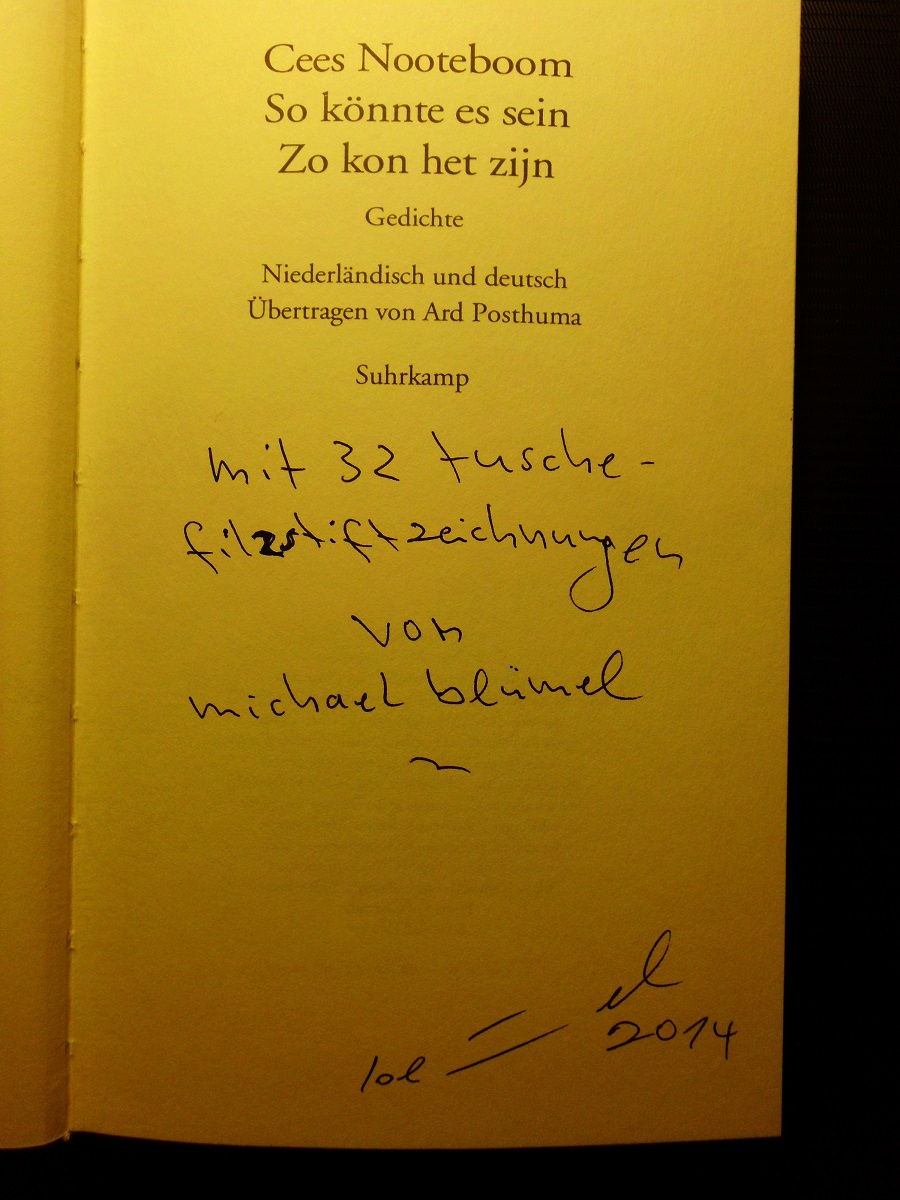 Cees Nooteboom
So könnte es sein
Zo kon het zijn
Gedichte
Niederländisch und deutsch
Übertragen von Ard Posthuma
Suhrkamp
mit 32 tusche-
filzstiftzeichnungen
von
michael blümel
2014